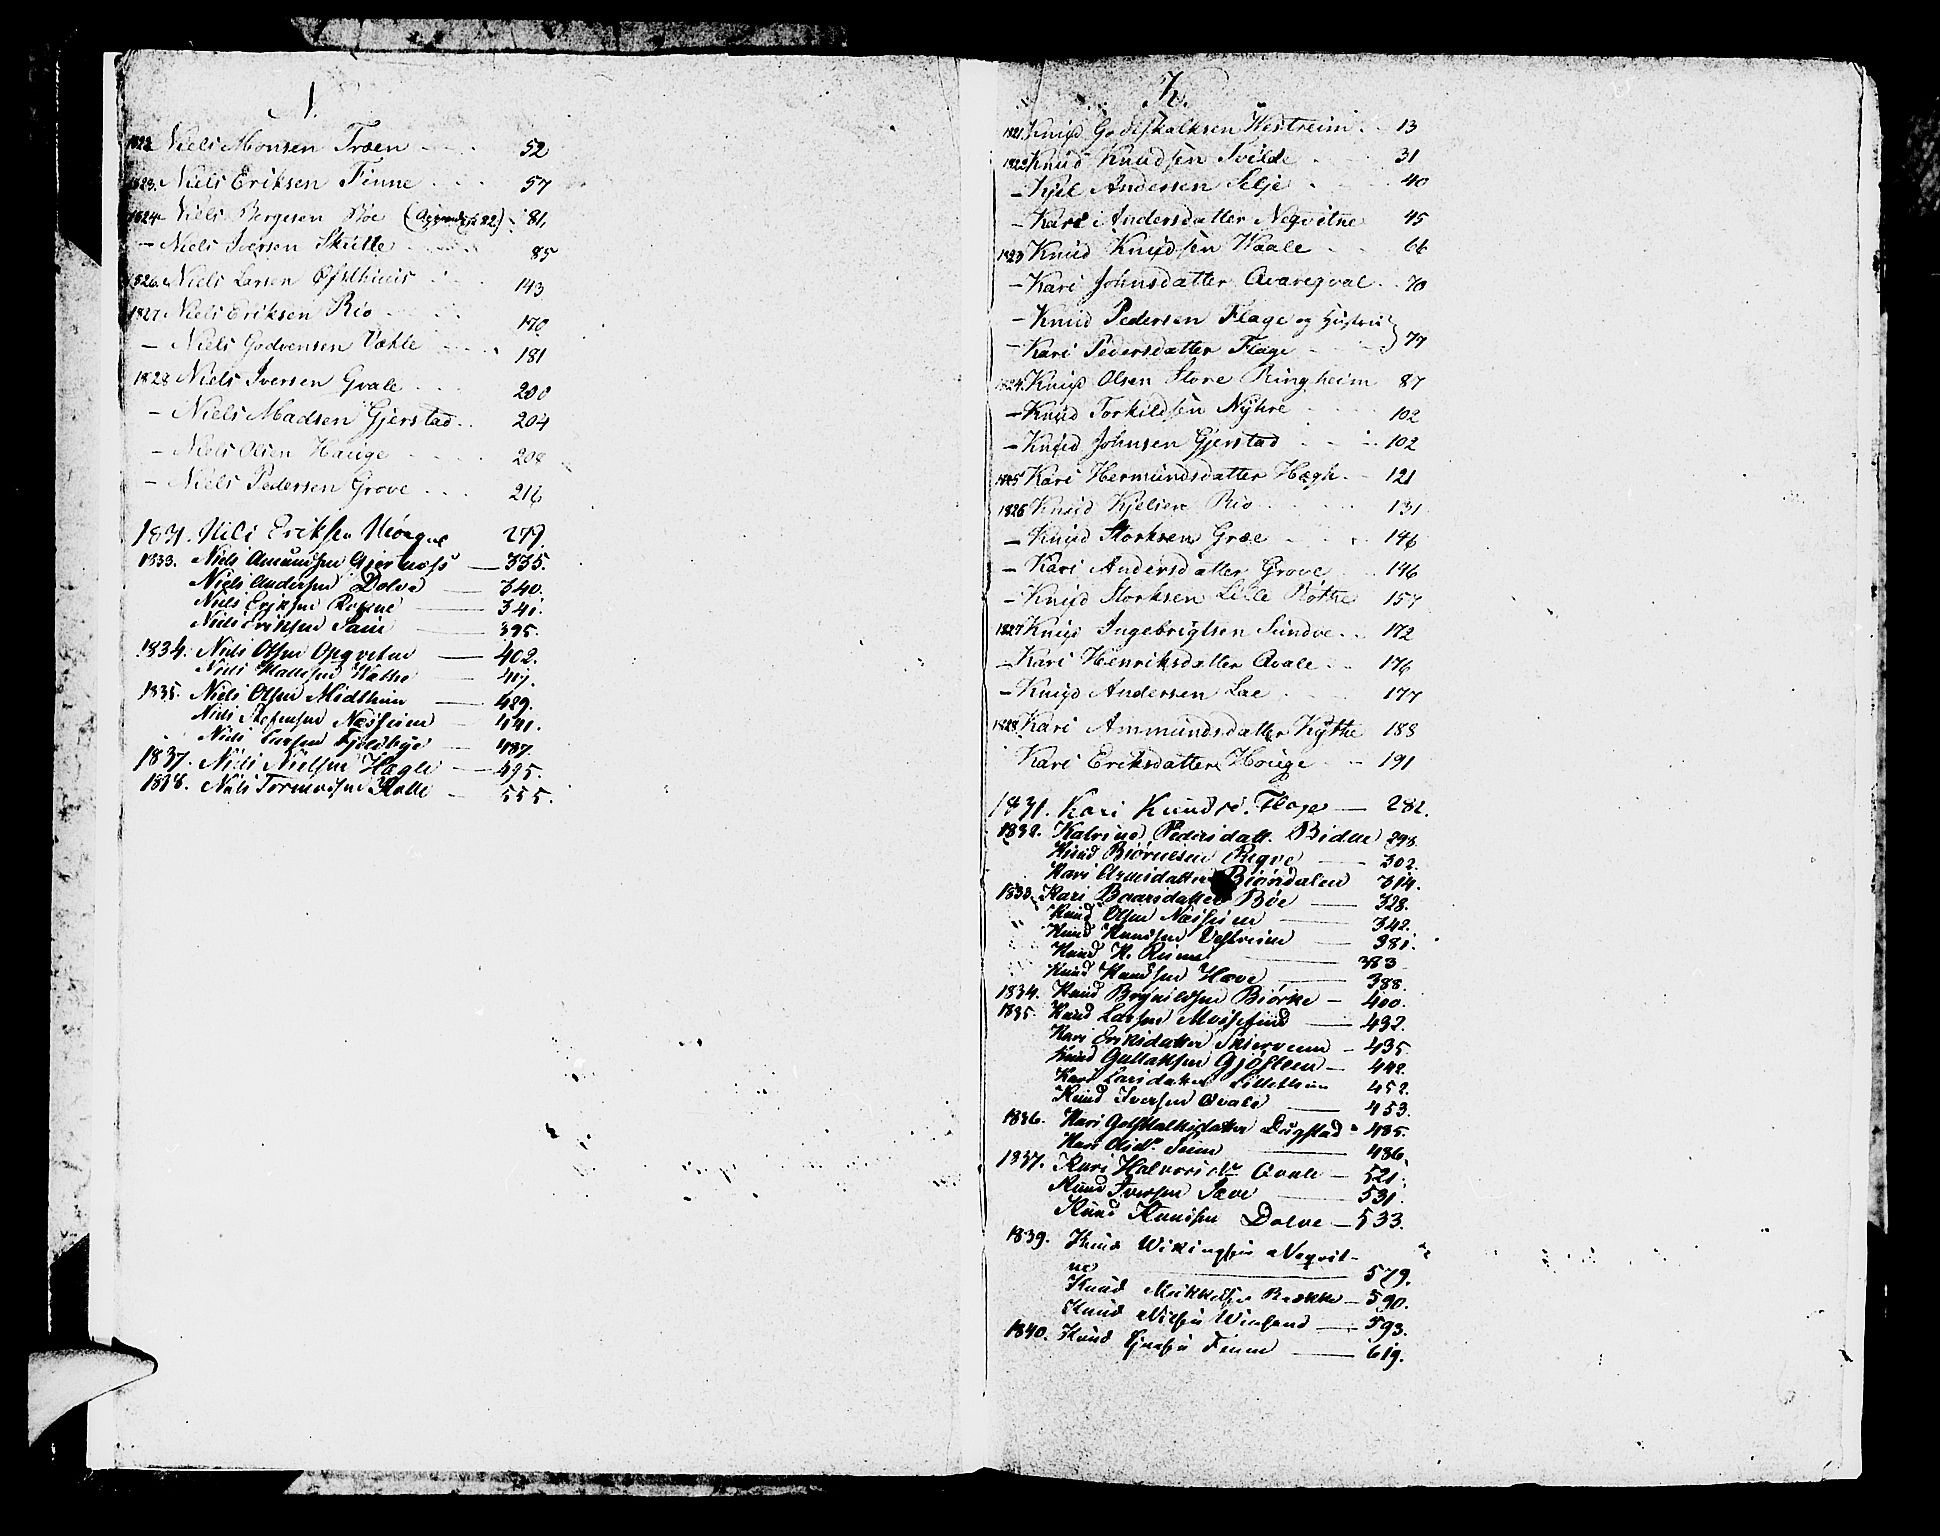 N.
1822. Niels Monsen Træen 52
1823. Niels Eriksen Finne 57
1824 Niels Bergesen Bøe 81
- Niels Iversen Skutle 85
1826 Niels Larsen Øfsthuus 143
1827 Niels Eriksen Rio 170
- Niels Godvensen Væhle 181
1828 Niels Iversen Gvale 200
- Niels Madsen Gjerstad 204
- Niels Olsen Hauge 208
- Niels Pedersen Grove 216
1831. Nils Eriksen 279.
1833. Niels Amundsen Giernæss 335.
Niels Andersen Dolve 340.
Niels Eriksen 341.
Niels Eriksen 395.
1834. Niels Olsen Opqvitne 402.
Niels 417.
1835. Niels Olsen Midthun 429.
Niels Stefensen Næsheim 441.
Niels Larsen 487.
1837. Niels Nielsen Hægli 495.
1838. Niels Tormodsen 555.
K.
1821. Knud Godtskalksen Westreim 13
1822 Knud Knudsen Tvilde 31
- Kjel Andersen Selje 40
- Kari Andersdatter Neqvitne 45
1823 Knud Knudsen Waale 66
- Kari Johnsdatter Qvareqval 70
- Knud Pedersen Flage og Hustrue
- Kari Pedersdatter Flage 77
1824. Knud Olsen Store Ringheim 87
- Knud Torkildsen Nyhre 102
- Knud Johnsen Gjerstad 102
1825 Kari Hermundsdatter Hægh 121
1826 Knud Kjelsen Rio 131
- Knud Storksen Græe 146
- Kari Andersdatter Grove 146
- Knud Storksen Lille Røthe 157
1827 Knud Ingebrigtsen Sundve 172
- Kari Henriksdatter Qvale 176
- Knud Andersen Lae 177
1828 Kari Ammundsdatter Kythe 188
Kari Eriksdatter Houge 191
1831. Kari Knudsd. Flage 282.
1832. Katrine Pedersdatt. 298.
Knud Biørnesen Rogne 302.
Kari Arnesdatter Biørndalen 314.
1833. Kari Baarsdatter Bøe 328.
Knud Olsen Næsheim 342.
Knud Knudsen Vestreim 381.
Knud K. 383
Knud Knudsen Hæve 388.
1834. Knud Brynildsen Biørke 400.
1835. Knud Larsen 432.
Kari Eriksdatter Skierveim 435.
Knud Gullaksen Gjøsteen 442.
Kari Larsdatter Lillethun 452.
Knud Iversen Qvale 453.
1836. Kari Godskalksdatter Dugstad 485.
Kari Olsdr Seim 486.
1837. Kari Halvorsdr Qvale 521.
Knud Iversen Sæve 531.
Knud Knudsen Dolve 533.
1839. Knud Wikingsen Neqvit-
ne 579.
Knud Mikkelsen Brække 590.
Knud Nilsen Winsand 593.
1840. Knud Finne 619.